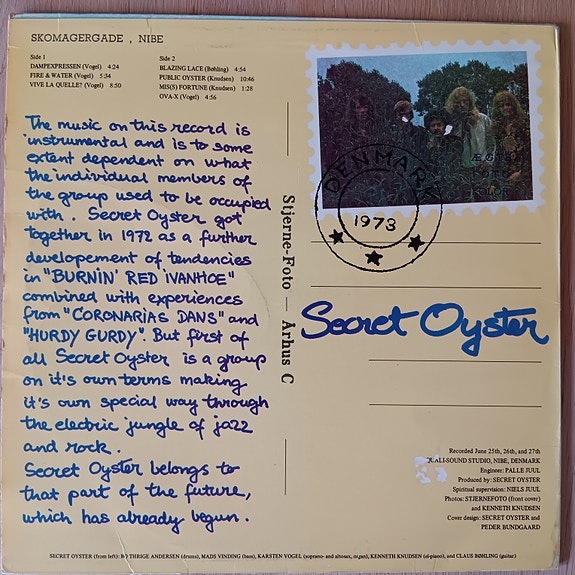 SKOMAGERGADE , NIBE
Side 1
DAMPEXPRESSEN (Vogel) 4:24
FIRE & WATER (Vogel) 5:34
VIVE LA QUELLE? (Vogel) 8:50
Side 2
BLAZING LACE (Bøhling) 4:54
PUBLIC OYSTER (Knudsen) 10:46
MIS(S) FORTUNE (Knudsen) 1:28
OVA-X (Vogel) 4:56
The music on this record is
instrumental and is to some
extent dependent on what
the individual members of
the group used to be occupied
with. Secret Oyster got
together in 1972 as a further
developement of tendencies
in "BURNIN' RED IVANHOE"
combined with experiences
from "CORONARIAS DANS" and
"HURDY GURDY". But first of
all Secret Oyster is a group
on it's own terms making
it's own special way through
the electric jungle of jazz
and rock.
Secret Oyster belongs to
that part of the future,
which has already begun.
Stjerne-Foto — Århus C
DENMARK
1973
Secret Oyster
Recorded June 25th, 26th, and 27th
QUALI-SOUND STUDIO, NIBE, DENMARK
Engineer: PALLE JUUL
Produced by: SECRET OYSTER
Spiritual supervision: NIELS JUUL
Photos: STJERNEFOTO (front cover)
and KENNETH KNUDSEN
Cover design: SECRET OYSTER and
PEDER BUNDGAARD
SECRET OYSTER (from left): BO THRIGE ANDERSEN (drums), MADS VINDING (bass), KARSTEN VOGEL (soprano- and altosax, organ), KENNETH KNUDSEN (el-piano), and CLAUS BØHLING (guitar)